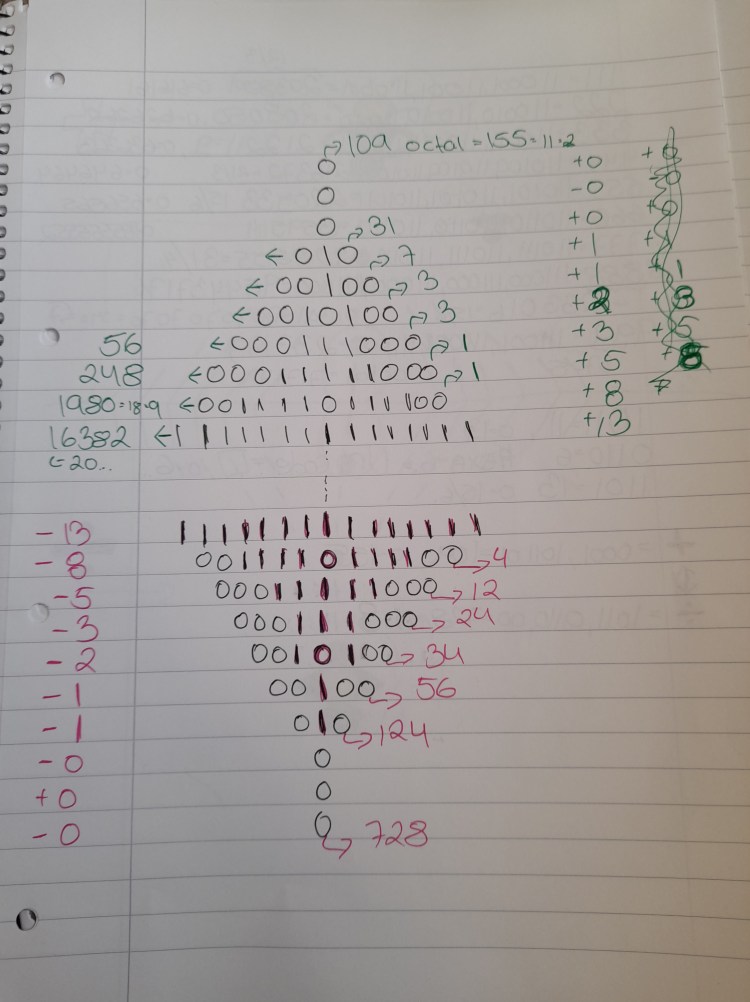 109 octal = 155 = 11·2
0 +0 +0
0 -0
0 31 +0 +0
← 010 7 +1
← 00100 3 +1 + 1
← 0010100 3 +2 + 3
56 ← 000111000 1 +3 + 5
248 ← 00011111000 1 + 5 + 8
1980=18·9 ← 001111101111100 + 8
16382 ← 111111111111111 + 13
← 20...
- 13 111111111111111
- 8 001111101111100 → 4
- 5 00011111000 → 12
- 3 000111000 → 24
- 2 0010100 → 34
- 1 00100 → 56
- 1 010 → 124
- 0 0
+ 0 0
- 0 0 → 728